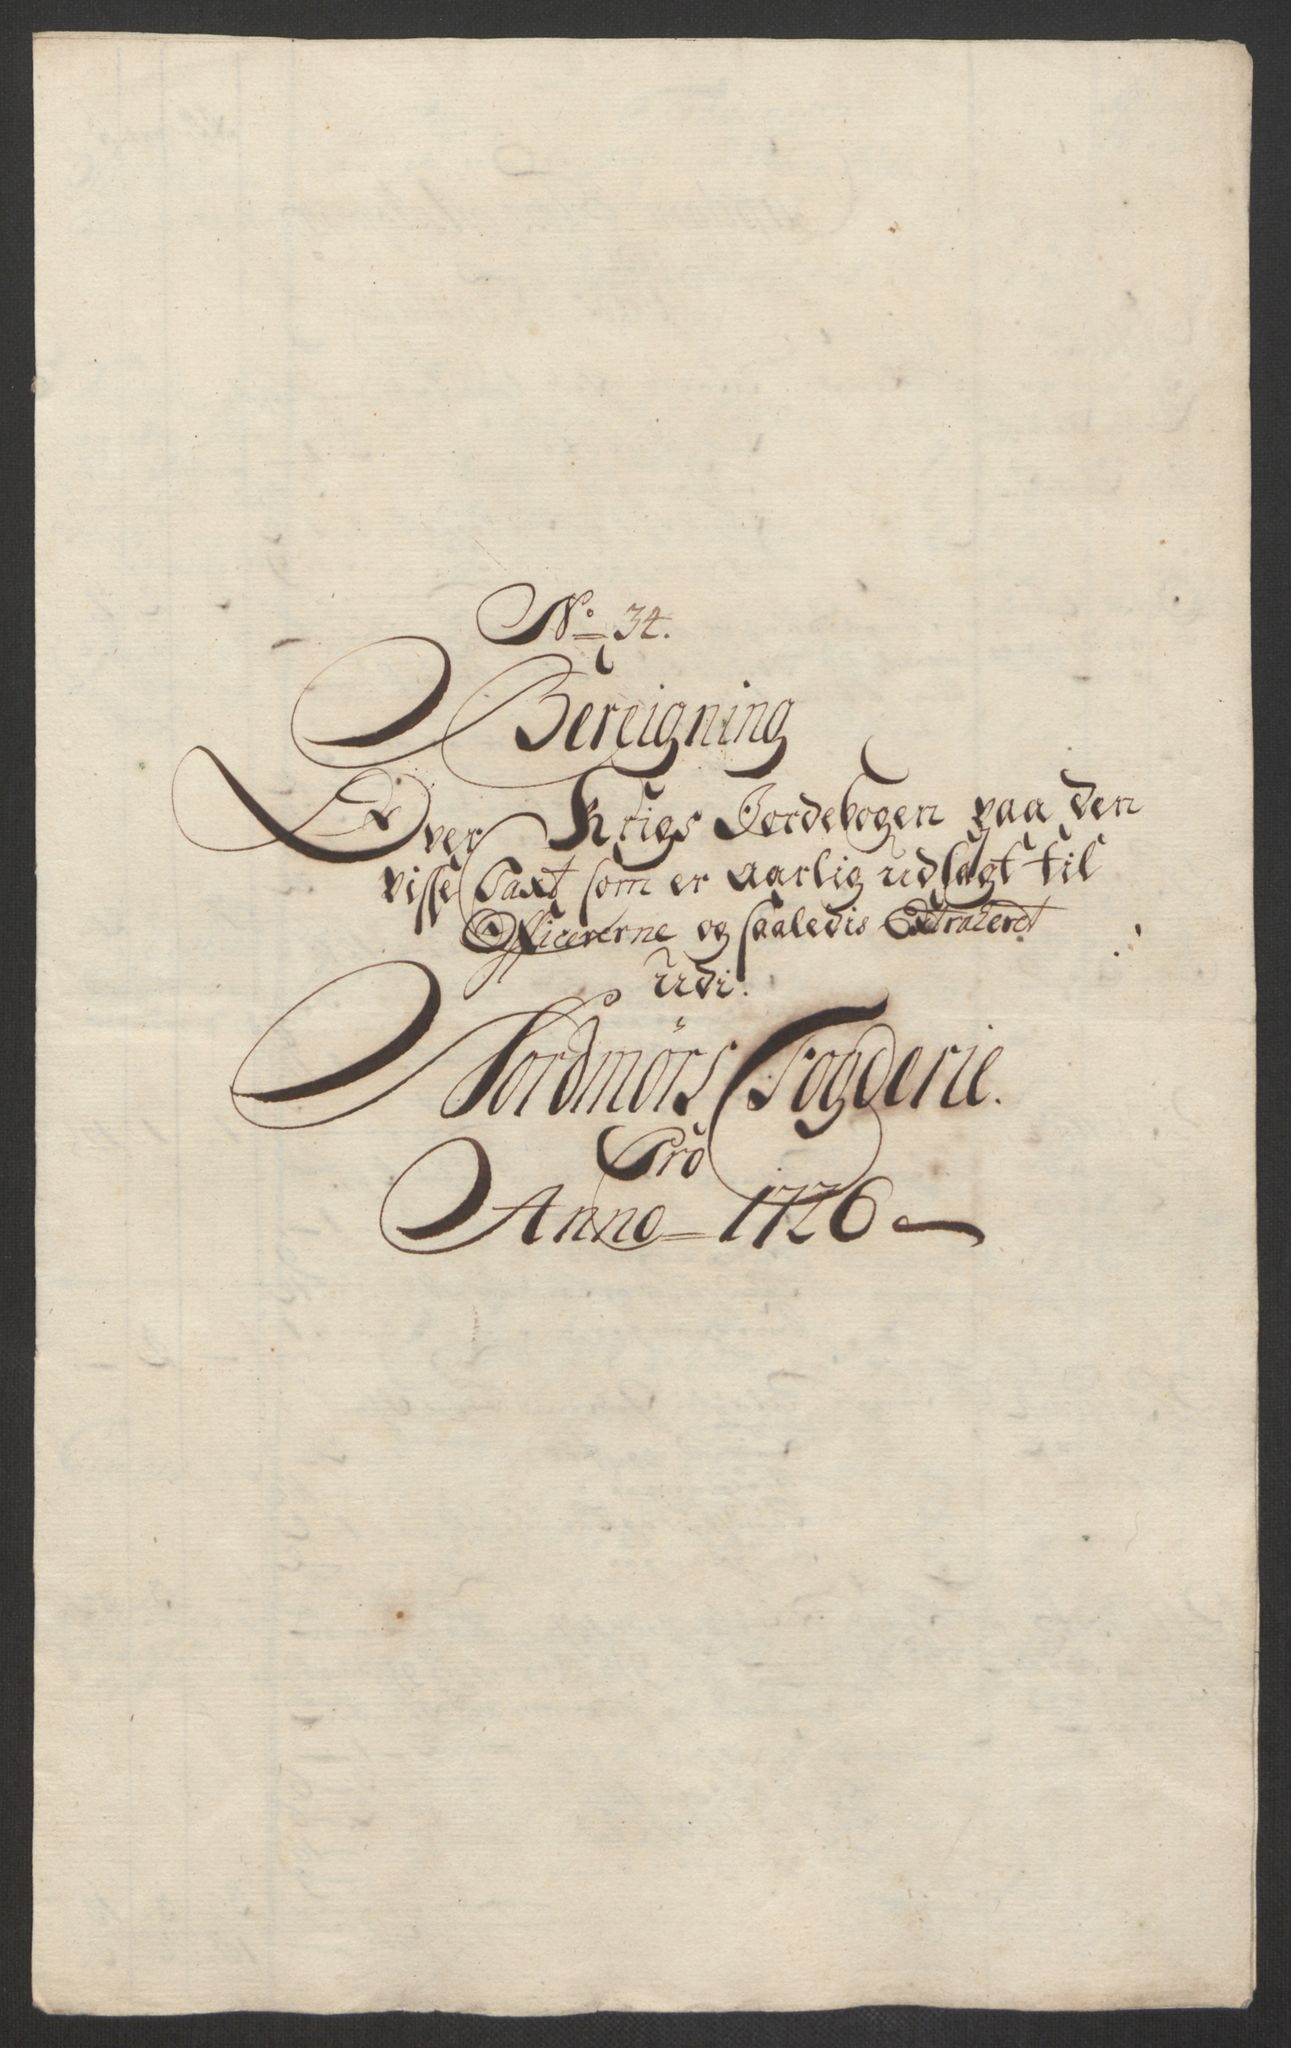 No 34.
Bereigning
Over Krigs Jordebogen paa den
visse Taxt som er aarlig udlagt til
Officererne og saaledis Extraherdt
udi.
Nordmørs Fogderie.
Pro
Anno 1726